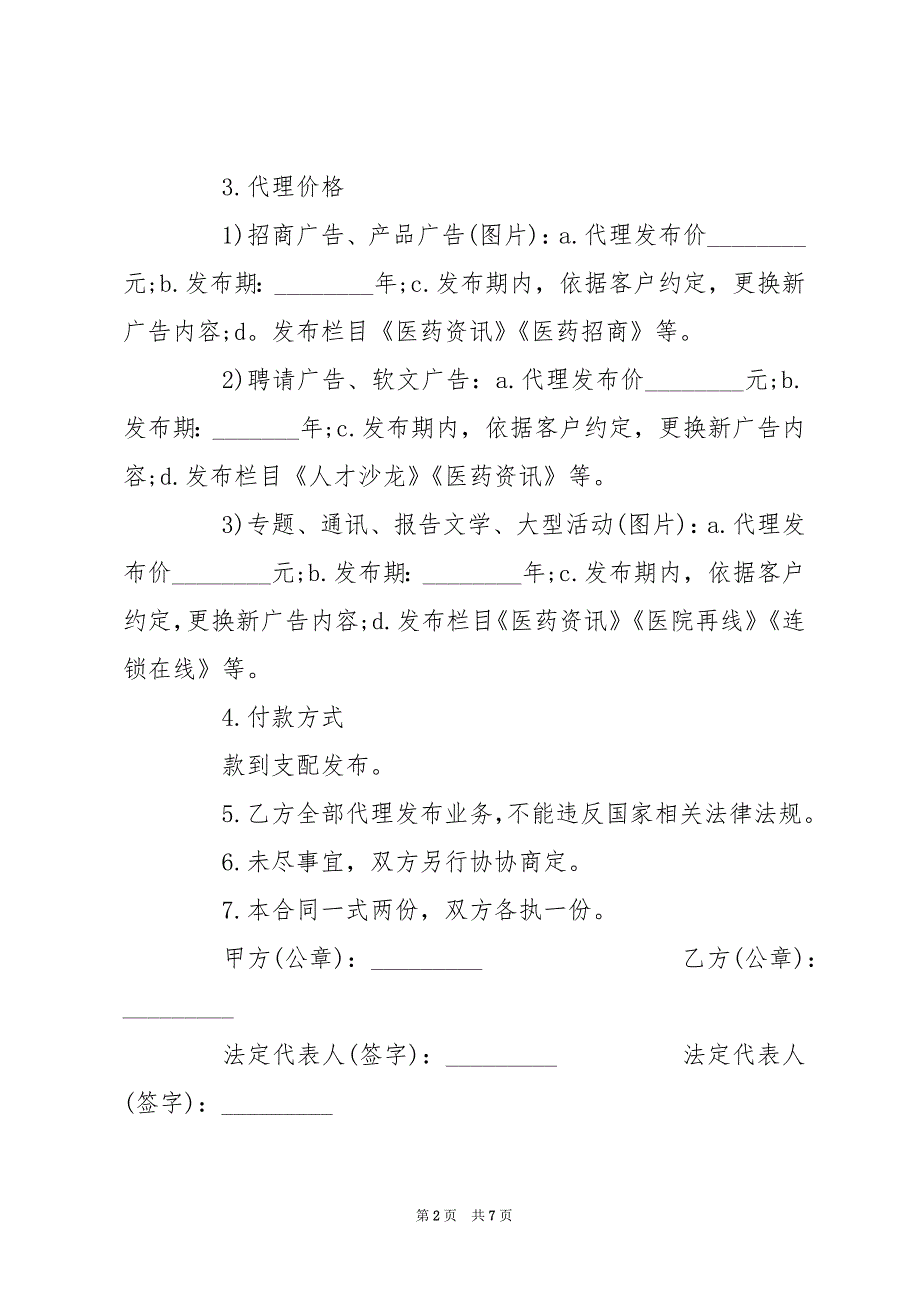 3.代理价格
1)招商广告、产品广告(图片)：a.代理发布价________
元;b.发布期：________年;c.发布期内，依据客户约定，更换新
广告内容;d。发布栏目《医药资讯》《医药招商》等。
2)聘请广告、软文广告：a.代理发布价________元;b.
发布期：_______年;c.发布期内，依据客户约定，更换新广告内
容;d.发布栏目《人才沙龙》《医药资讯》等。
3)专题、通讯、报告文学、大型活动(图片)：a.代理发
布价________元;b.发布期：________年;c.发布期内，依据客户
约定，更换新广告内容;d.发布栏目《医药资讯》《医院再线》《连
锁在线》等。
4.付款方式
款到支配发布。
5.乙方全部代理发布业务，不能违反国家相关法律法规。
6.未尽事宜，双方另行协协商定。
7.本合同一式两份，双方各执一份。
甲方(公章)：_________ 乙方(公章)：
_________
法定代表人(签字)：_________ 法定代表人
(签字)：_________
第 2 页 共 7 页